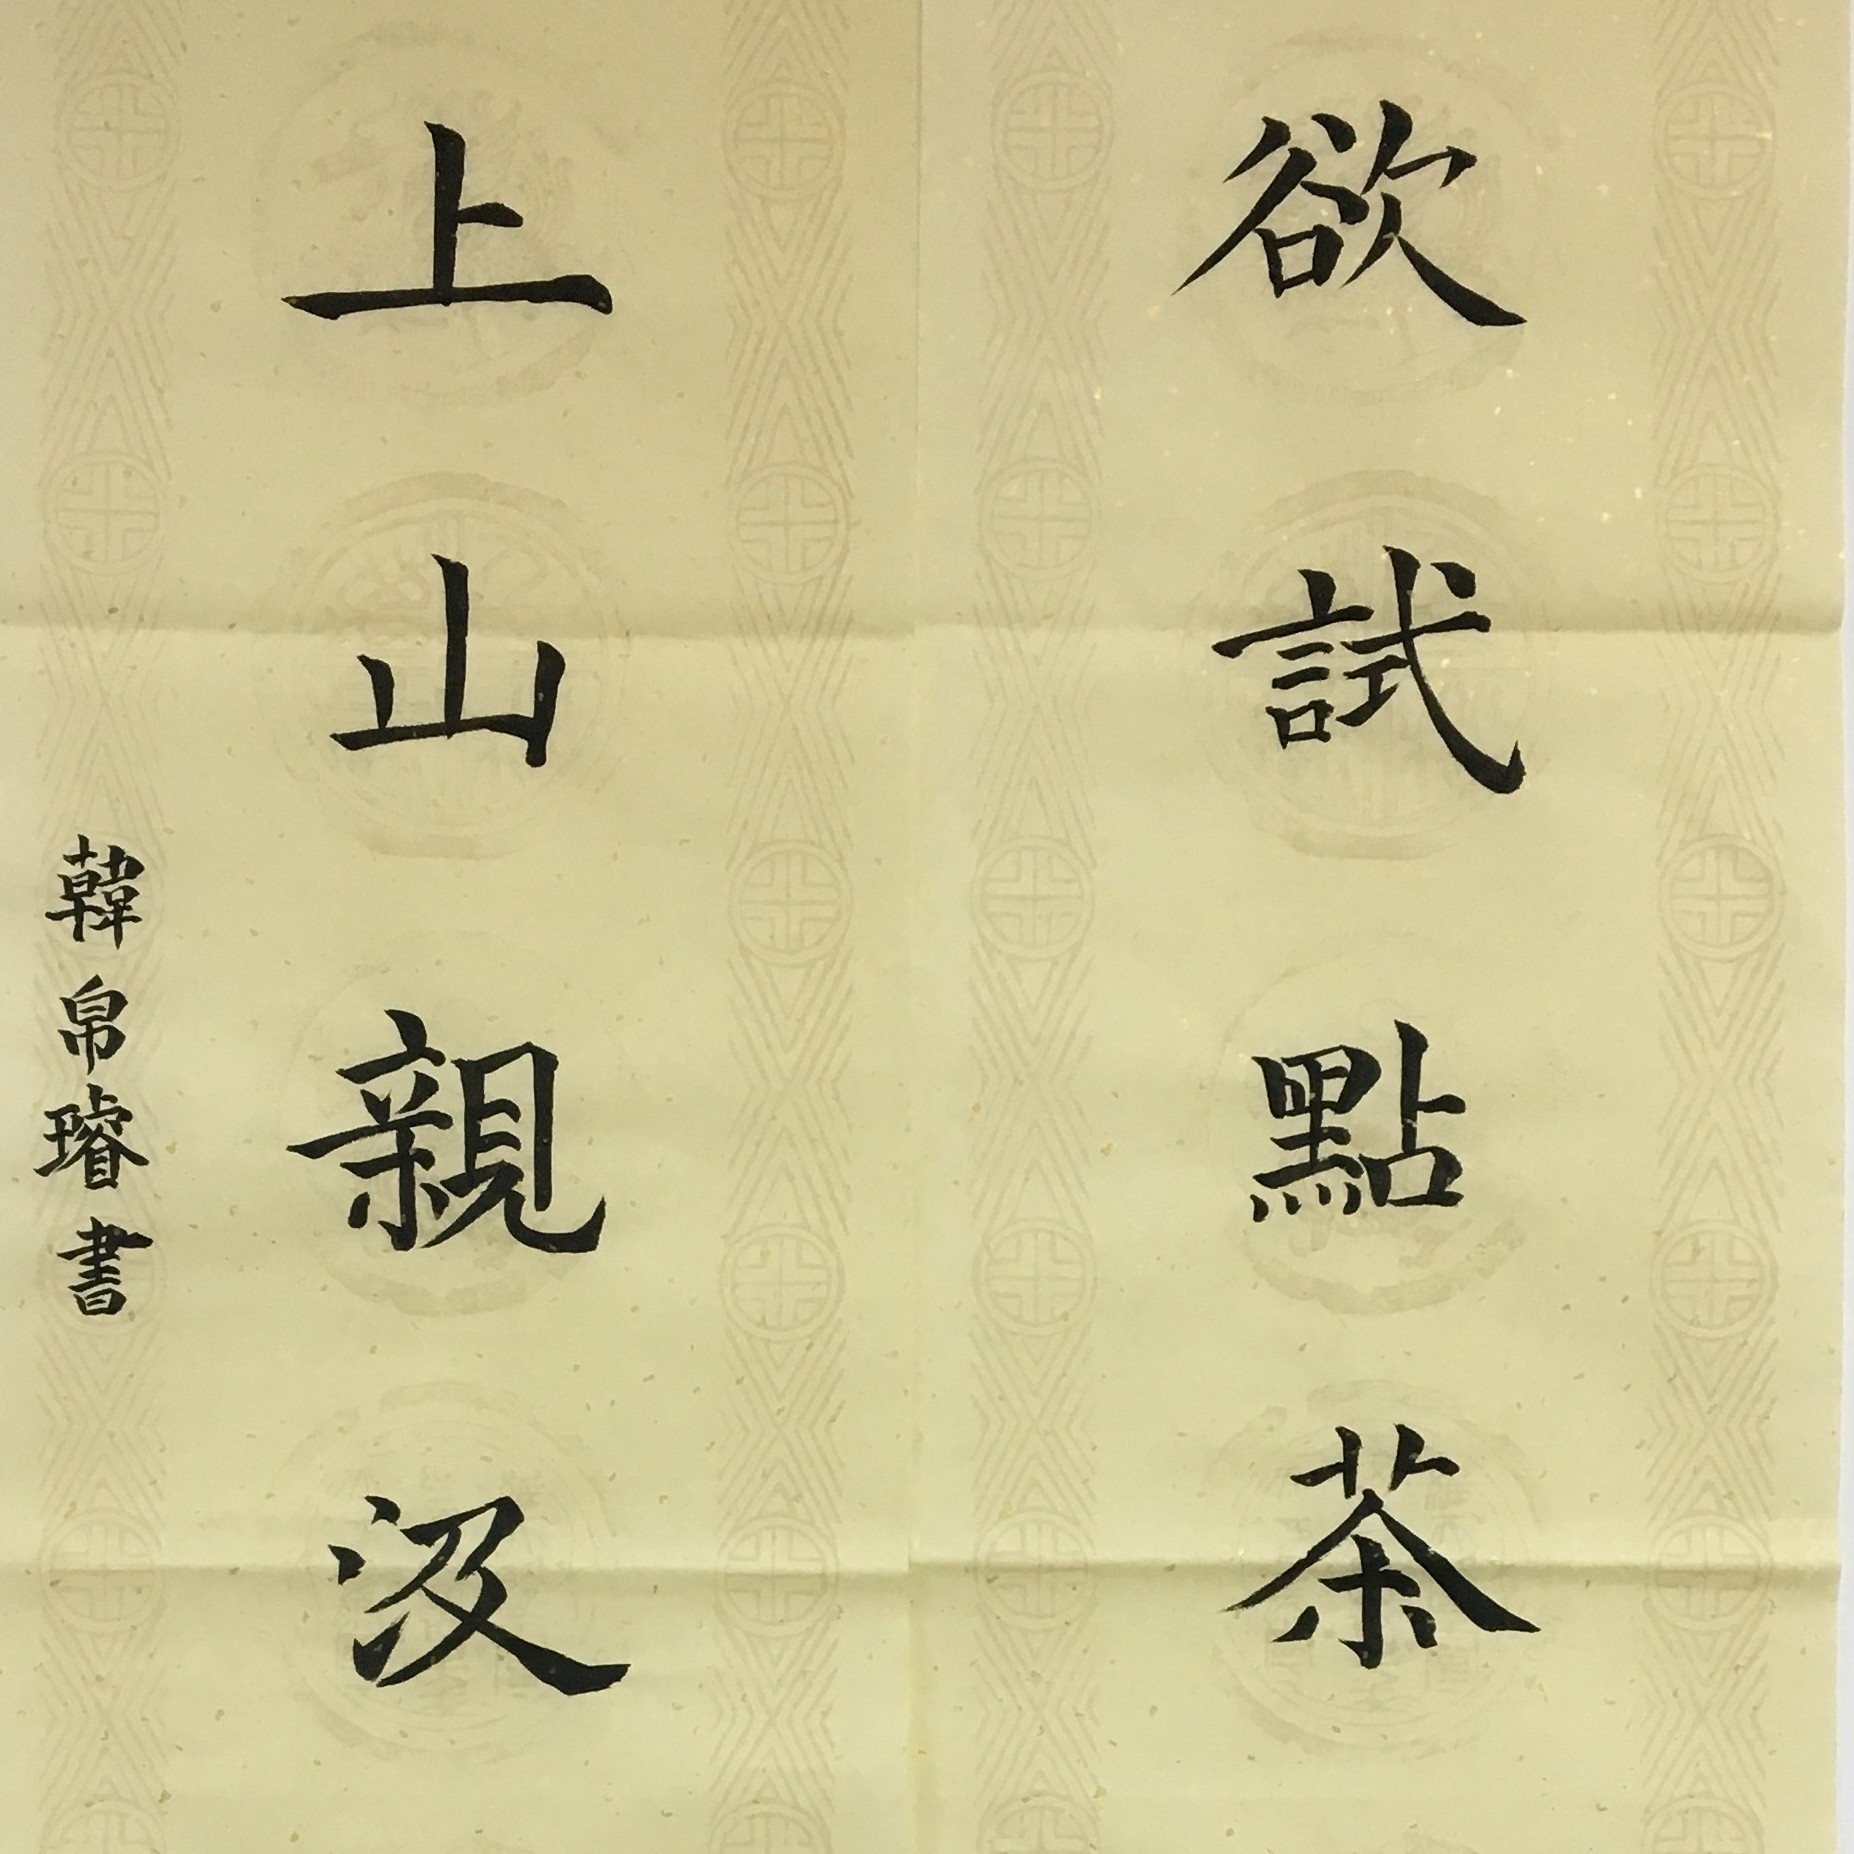 欲試點茶
上山親汲
韓帛璿書